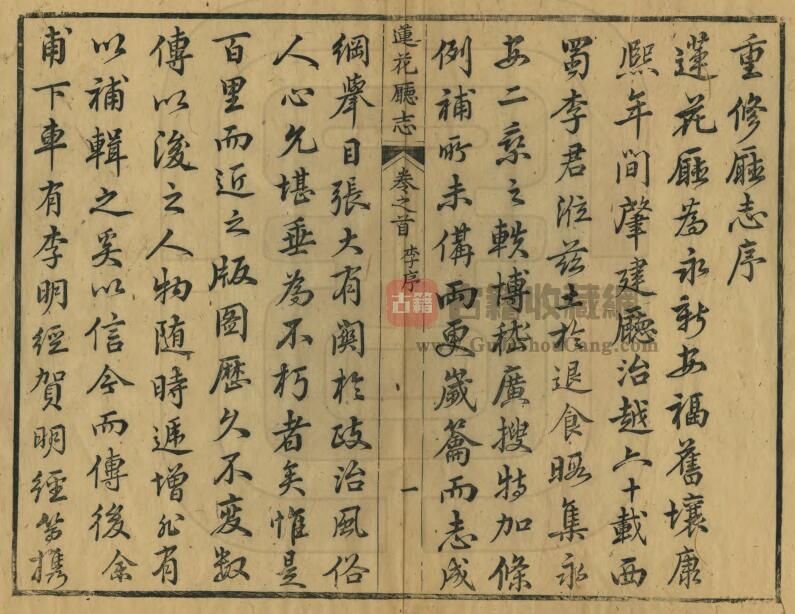 重修廳志序
蓮花廳為永新安福舊壤康
熙年間肇建廳治越六十載西
蜀李君涖茲土於退食暇集永
安二泰之軼博稽廣搜特加條
例補所未備兩更歲籥而志成
蓮花廳志 卷之首 李序 一
綱舉目張大有關於政治風俗
人心允堪垂為不朽者矣惟是
百里而近之版圖歷久不変数
傳以後之人物随時遞增非有
以補輯之奚以信今而傳後余
甫下車有李明經賀明經等携
古籍
古籍收藏網
www.GuJiShouCang.com